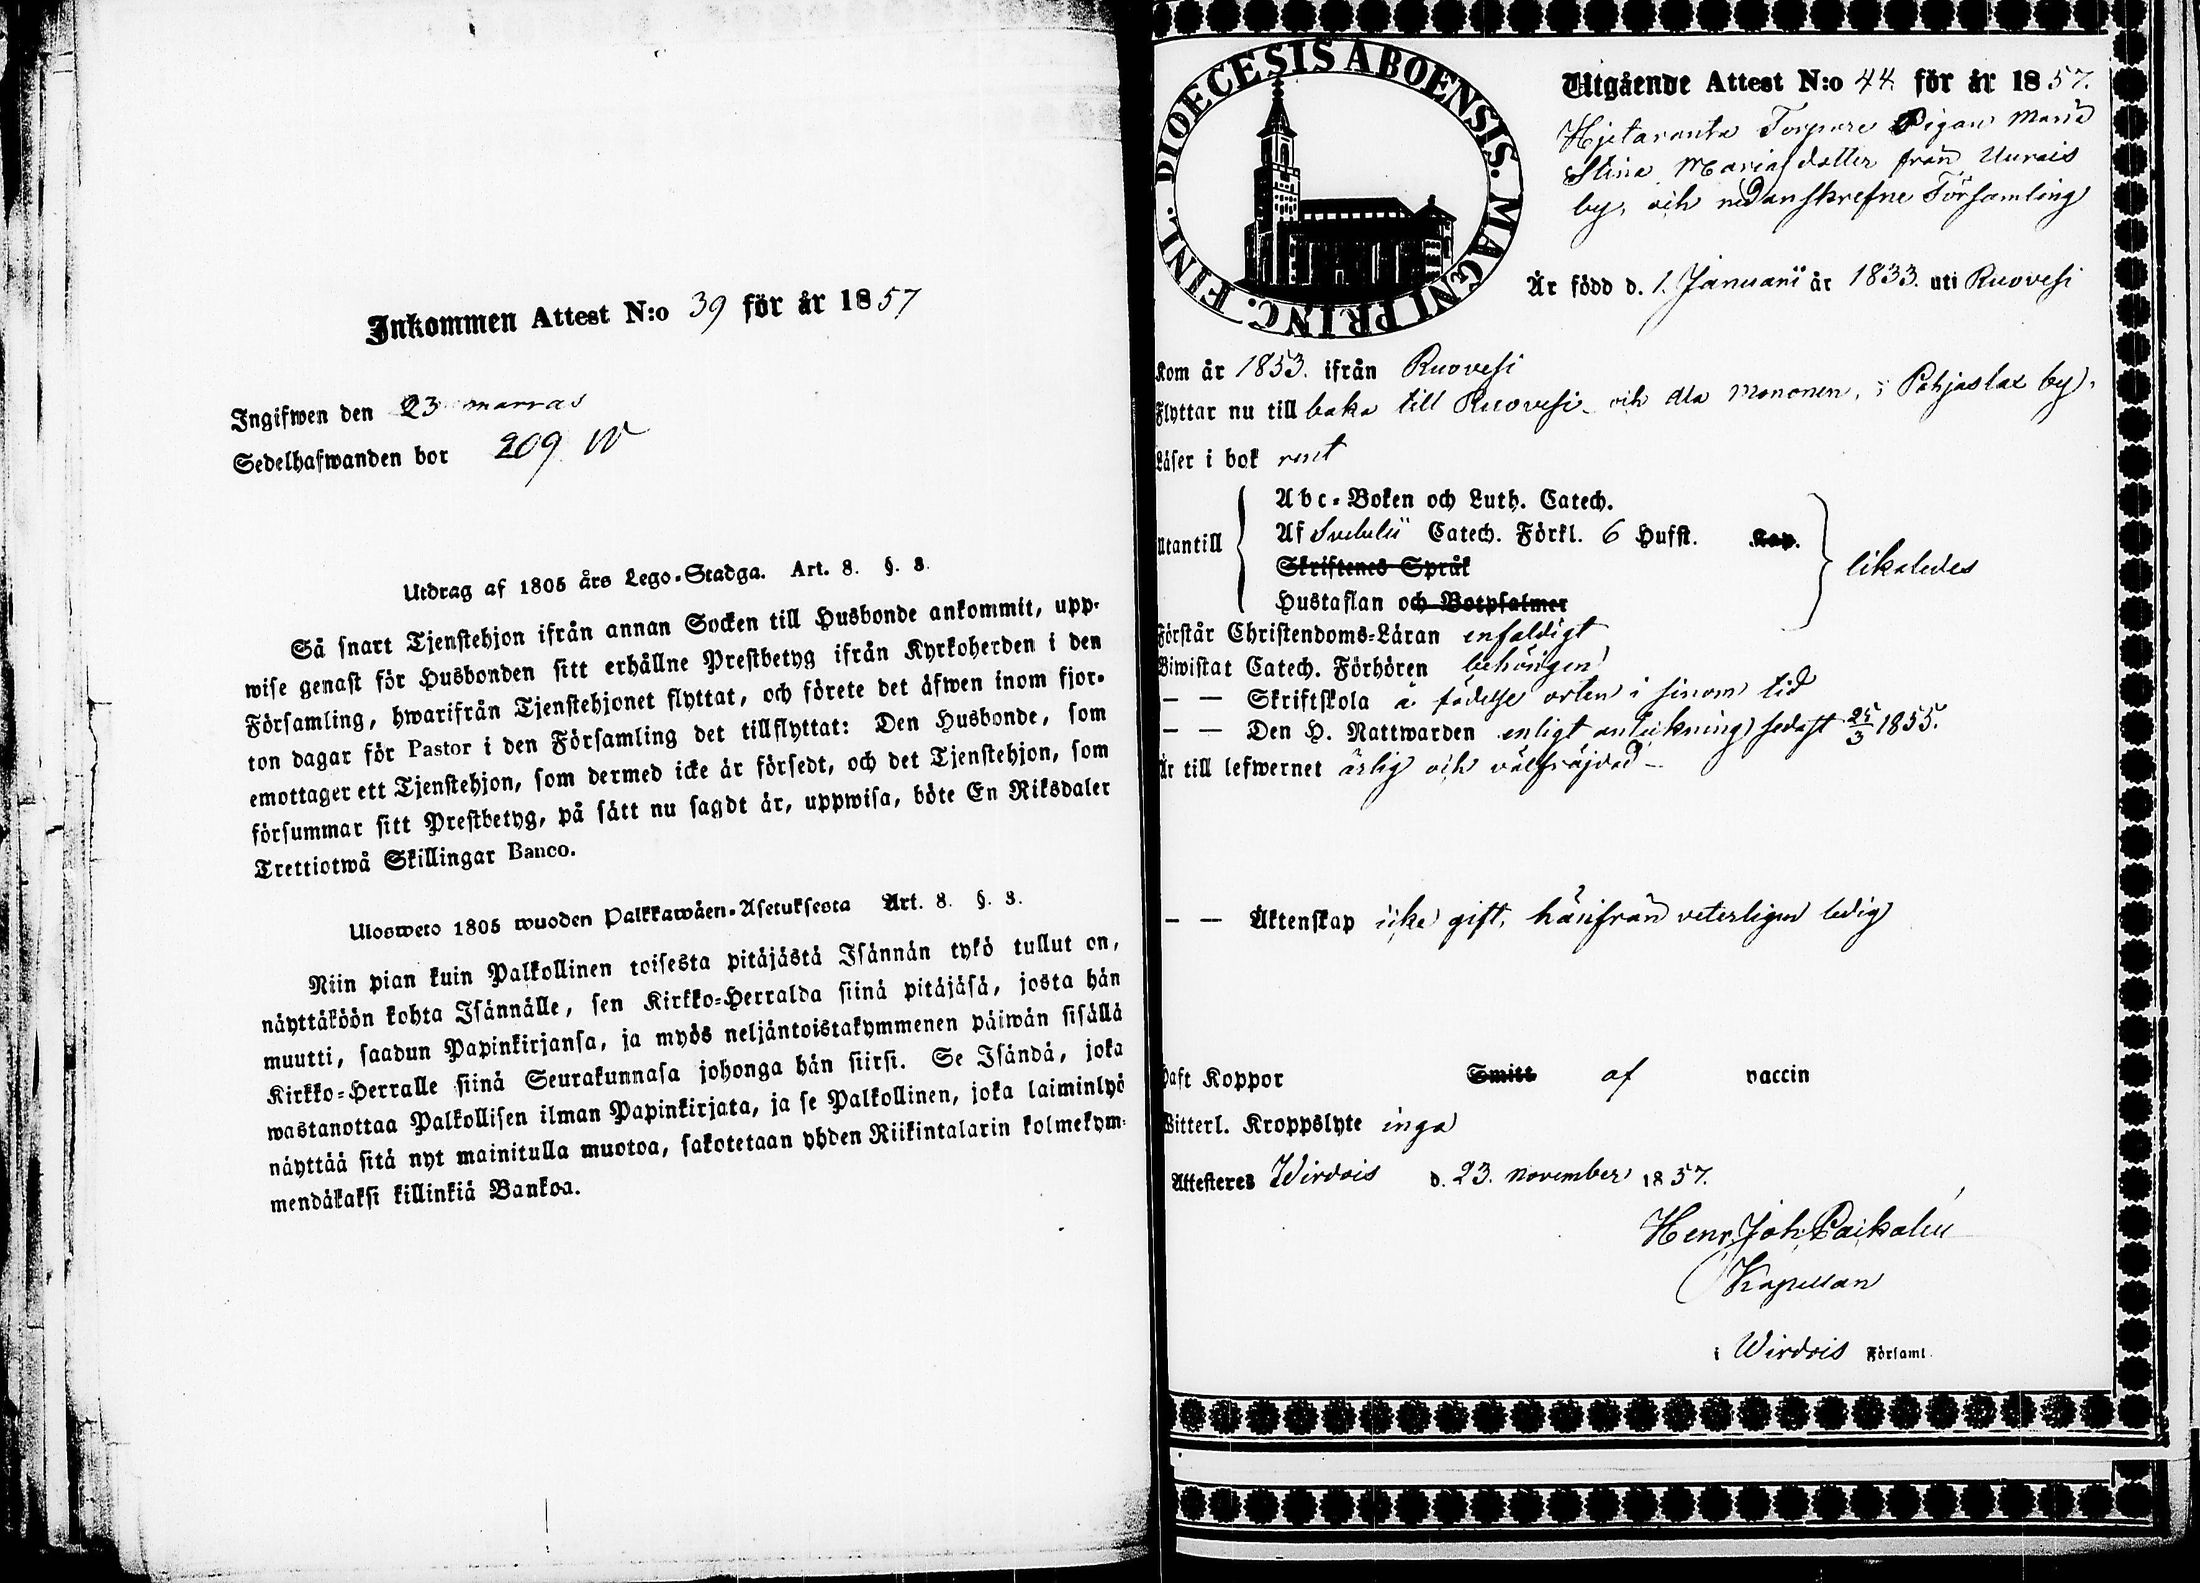 Inkommen Attest N:o 39 för år 1857
Ingifwen den 23 marras
Sedelhafwanden bor 209 W
Utdrag af 1805 års Lego-Stadga. Art. 8. §. 8.
Så snart Tjenstehjon ifrån annan Socken till Husbonde ankommit, upp-
wise genast för Husbonden sitt erhållne Prestbetyg ifrån Kyrkoherden i den
Församling, hwarifrån Tjenstehjonet flyttat, och förete det äfwen inom fjor-
ton dagar för Pastor i den Församling det tillflyttat: Den Husbonde, som
emottager ett Tjenstehjon, som dermed icke är försedt, och det Tjenstehjon, som
försummar sitt Prestbetyg, på sätt nu sagdt är, uppwisa, böte En Riksdaler
Trettiotwå Skillingar Banco.
Ulosweto 1805 wuoden Palkkawäen-Asetuksesta Art. 8. §. 8.
Niin pian kuin Palkollinen toisesta pitäjästä Isännän tykö tullut on,
näyttäköön kohta Isännälle, sen Kirkko-Herralda siinä pitäjäsä, josta hän
muutti, saadun Papinkirjansa, ja myös neljäntoistakymmenen päiwän sisällä
Kirkko-Herralle siinä Seurakunnasa johonga hän siirsi. Se Isändä, joka
wastanottaa Palkollisen ilman Papinkirjata, ja se Palkollinen, joka laiminlyö
näyttää sitä nyt mainitulla muotoa, sakotetaan yhden Riikintalarin kolmekym-
mendäkaksi killinkiä Bankoa.
DIOECESIS ABOENSIS. MAGNI PRINC. FINL.
Utgående Attest N:o 44 för år 1857.
Hjetaranta Torpare Pigan Maria
Stina Mariasdotter från Uurais
by, och nedanskrefne Församling
Är född d. 1. Januarii år 1833. uti Ruovesi
Kom år 1853. ifrån Ruovesi
Flyttar nu till baka till Ruovesi och Ala Mononen, i Pohjaslax by.
Läser i bok rent
Utantill
Abc-Boken och Luth. Catech.
Af Svebelii Catech. Förkl. 6 Hufst. Kap.
Skriftenes Språk
Hustaflan och Botpsalmer
likaledes
Förstår Christendoms-Läran enfaldigt
Biwistat Catech. Förhören behörigen
— — Skriftskola å födelse orten i sinom tid
— — Den H. Nattwarden enligt anteckning sedast 25/3 1855.
Är till lefwernet ärlig och välfräjdad —
— — Äktenskap icke gift, härifrån veterligen ledig
Haft Koppor Smitt af vaccin
Witterl. Kroppslyte inga
Attesteres Wirdois d. 23. november 1857.
Henr. Joh.
Kapellan
i Wirdois Församl.